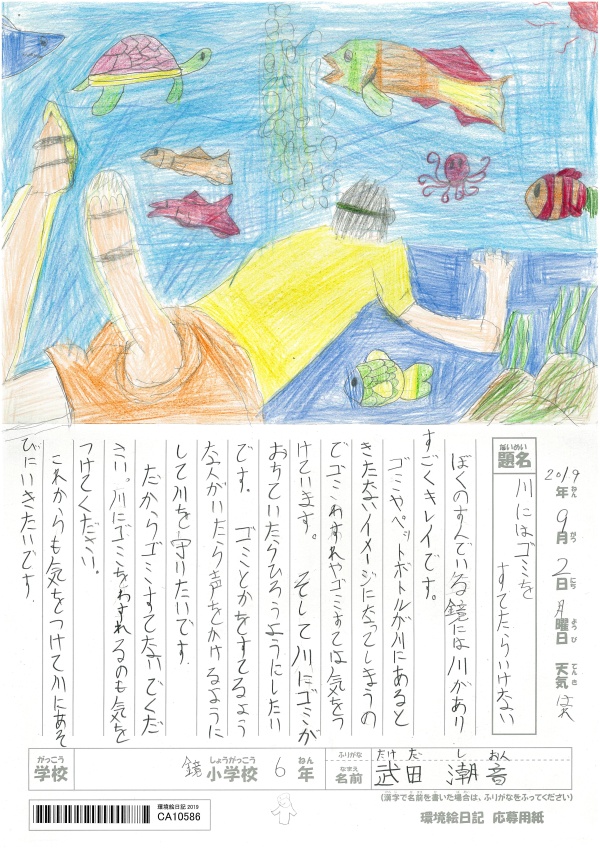 2019年 9月 2日 月曜日 天気
ねん がつ にち ようび てんき
だいめい
題名
川にはゴミを
すてたらいけない
ぼくのすんでいる鏡には川があり
すごくキレイです。
ゴミやペットボトルが川にあると
きたないイメージになってしまうの
でゴミわすれやゴミすては気をつ
けています。 そして川にゴミが
おちていたらひろうようにしたい
です。 ゴミとかをすてるよう
な人がいたら声をかけるように
して川を守りたいです。
だからゴミすてないでくだ
さい。川にゴミをわすれるのも気を
つけてください。
これからも気をつけて川にあそ
びにいきたいです。
がっこう しょうがっこう ねん
学校 鏡 小学校 6 年
ふりがな たけ だ し おん
なまえ
名前 武田 潮音
(漢字で名前を書いた場合は、ふりがなをふってください)
環境絵日記 2019
CA10586
環境絵日記 応募用紙